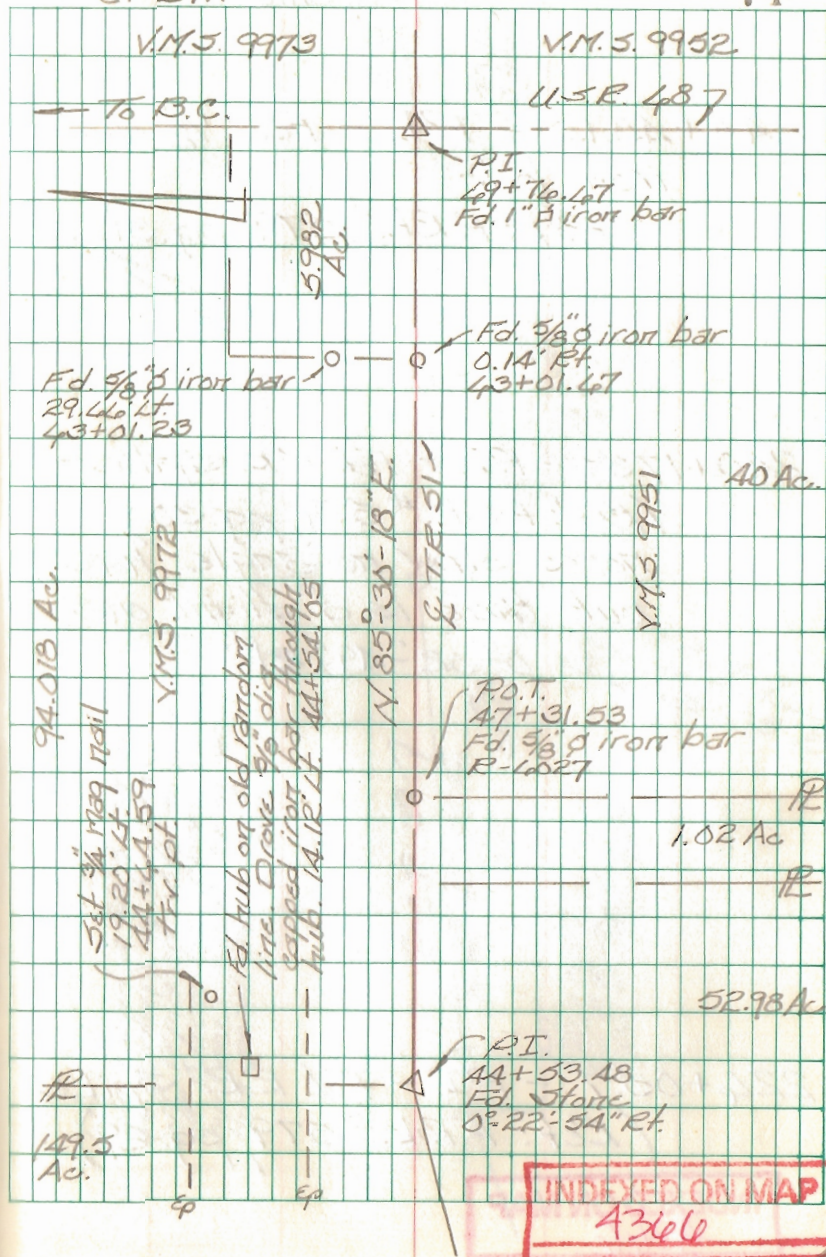 V.M.S. 9973
V.M.S. 9952
To B.C.
U.S.R. 487
P.I.
49+76.47
Fd. 1" ø iron bar
5.982
Ac.
Fd. 5/8" ø iron bar
0.14' Rt.
43+01.47
Fd. 5/8" ø iron bar
29.66' Lt.
43+01.23
40 Ac.
N. 85°-35'-18" E.
℄ T.R. 51
V.M.S. 9951
94.018 Ac.
V.M.S. 9972
P.O.T.
47+31.53
Fd. 5/8" ø iron bar
R-6027
PL
1.02 Ac
PL
Set 3/4" mag nail
19.20' Lt.
44+64.59
Trv. pt.
Fd. hub on old random
line. Drove 5/8" dia.
capped iron bar through
hub. 14.12' Lt. 44+54.65
52.98 Ac
P.I.
44+53.48
Fd. Stone
0°-22'-54" Rt.
PL
149.5
Ac.
EP
EP
INDEXED ON MAP
4366